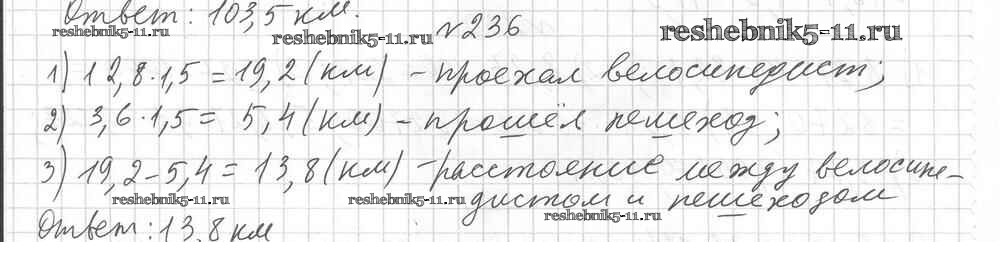 Ответ: 103,5 км.
reshebnik5-11.ru
reshebnik5-11.ru
№236
reshebnik5-11.ru
1) 12,8·1,5=19,2(км) - проехал велосипедист;
2) 3,6·1,5= 5,4(км) - прошёл пешеход;
3) 19,2-5,4=13,8(км) - расстояние между велосипе-
reshebnik5-11.ru
reshebnik5-11.ru
дистом и пешеходом
reshebnik5-11.ru
Ответ: 13,8 км